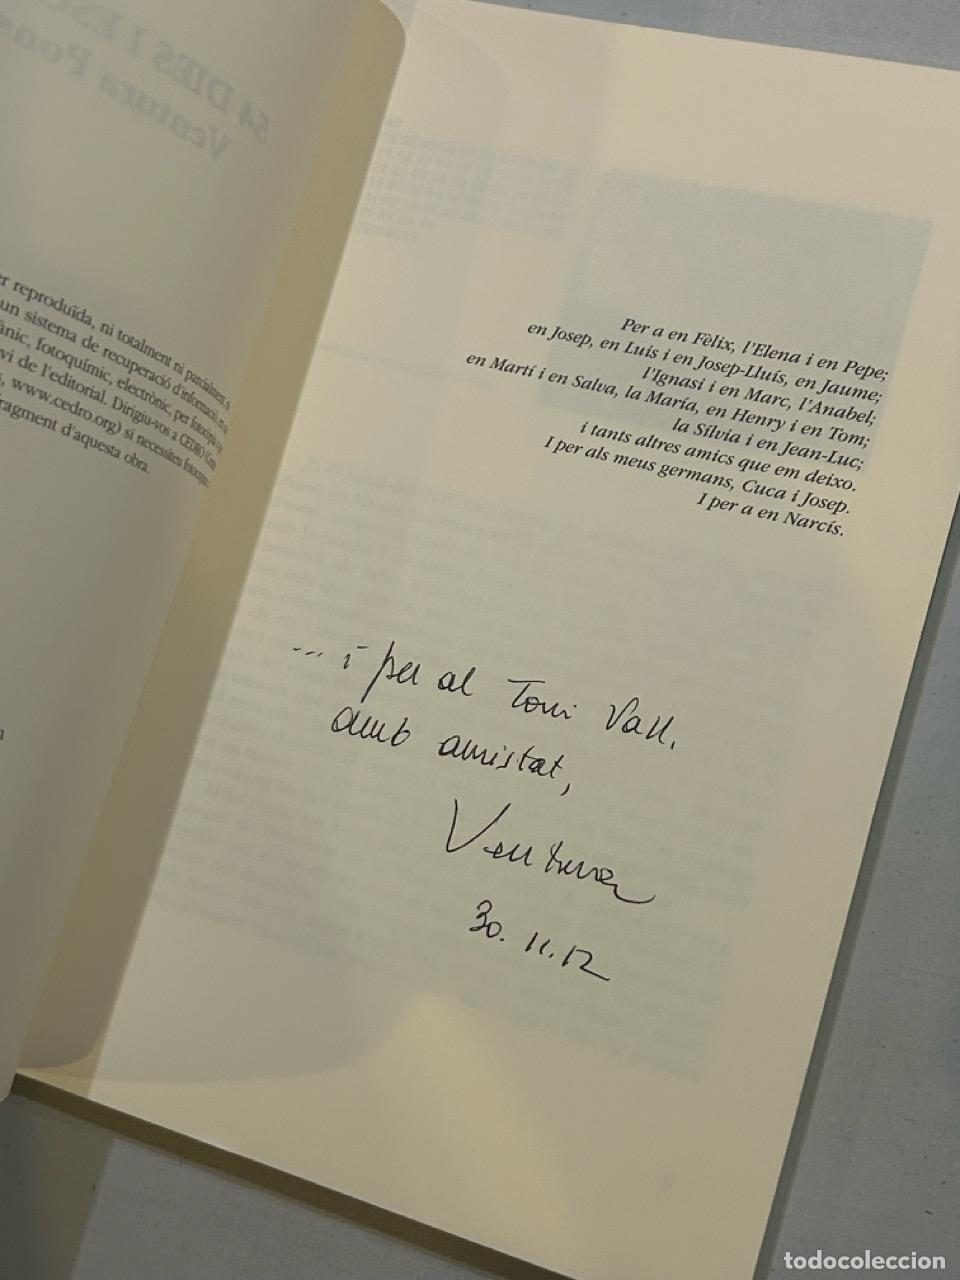 54 DIES I ESC
Ventura Pons
er reproduïda, ni totalment ni parcialment, n
un sistema de recuperació d'informació, en
ànic, fotoquímic, electrònic, per fotocòpia
vi de l'editorial. Dirigiu-vos a CEDRO
, www.cedro.org) si necessiteu
fragment d'aquesta obra.
Per a en Fèlix, l'Elena i en Pepe;
en Josep, en Luis i en Josep-Lluís, en Jaume;
l'Ignasi i en Marc, l'Anabel;
en Martí i en Salva, la María, en Henry i en Tom;
la Sílvia i en Jean-Luc;
i tants altres amics que em deixo.
I per als meus germans, Cuca i Josep.
I per a en Narcís.
... i per al Toni Vall.
amb amistat,
Ventura
30.11.12
todocoleccion